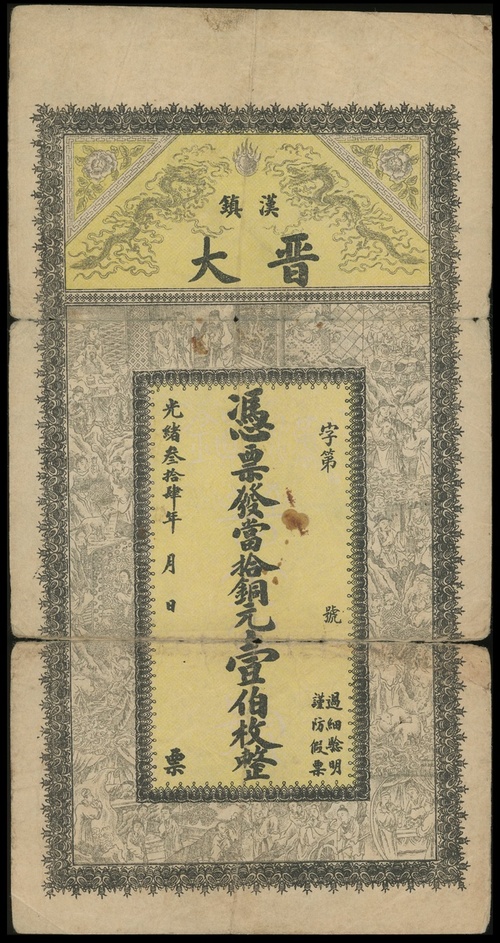 漢鎮
晋大
字第 號
過細驗明
謹防假票
憑票發當拾銅元壹伯枚整
光緒叁拾肆年 月 日 票